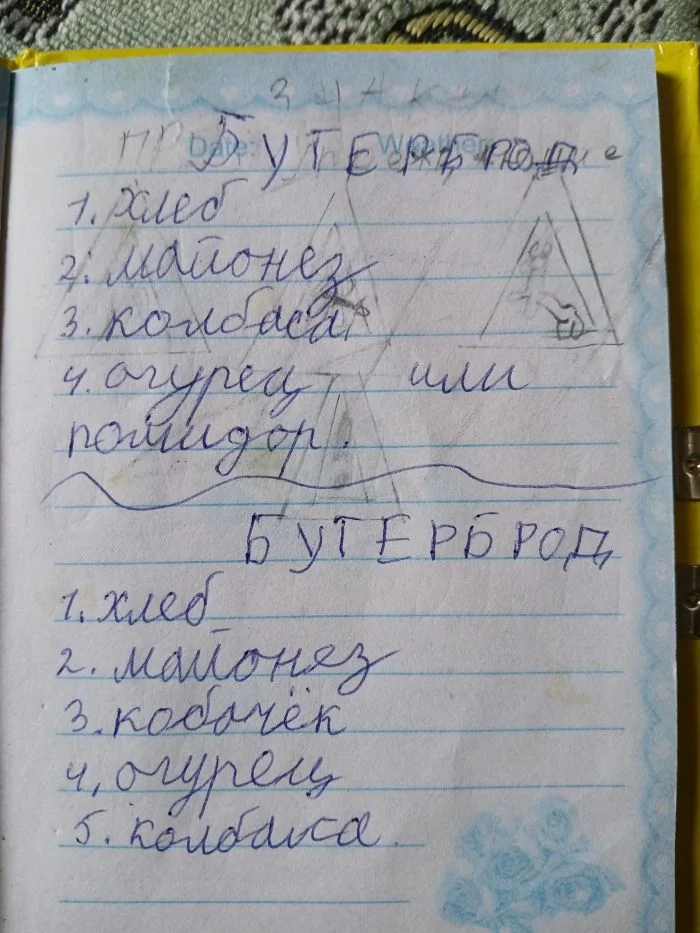 знаки
Date: Weather:
БУТЕРБРОД
1. хлеб
2. майонез
3. колбаса
4. огурец или
помидор.
БУТЕРБРОД
1. хлеб
2. майонез
3. кобачёк
4, огурец
5. колбаса